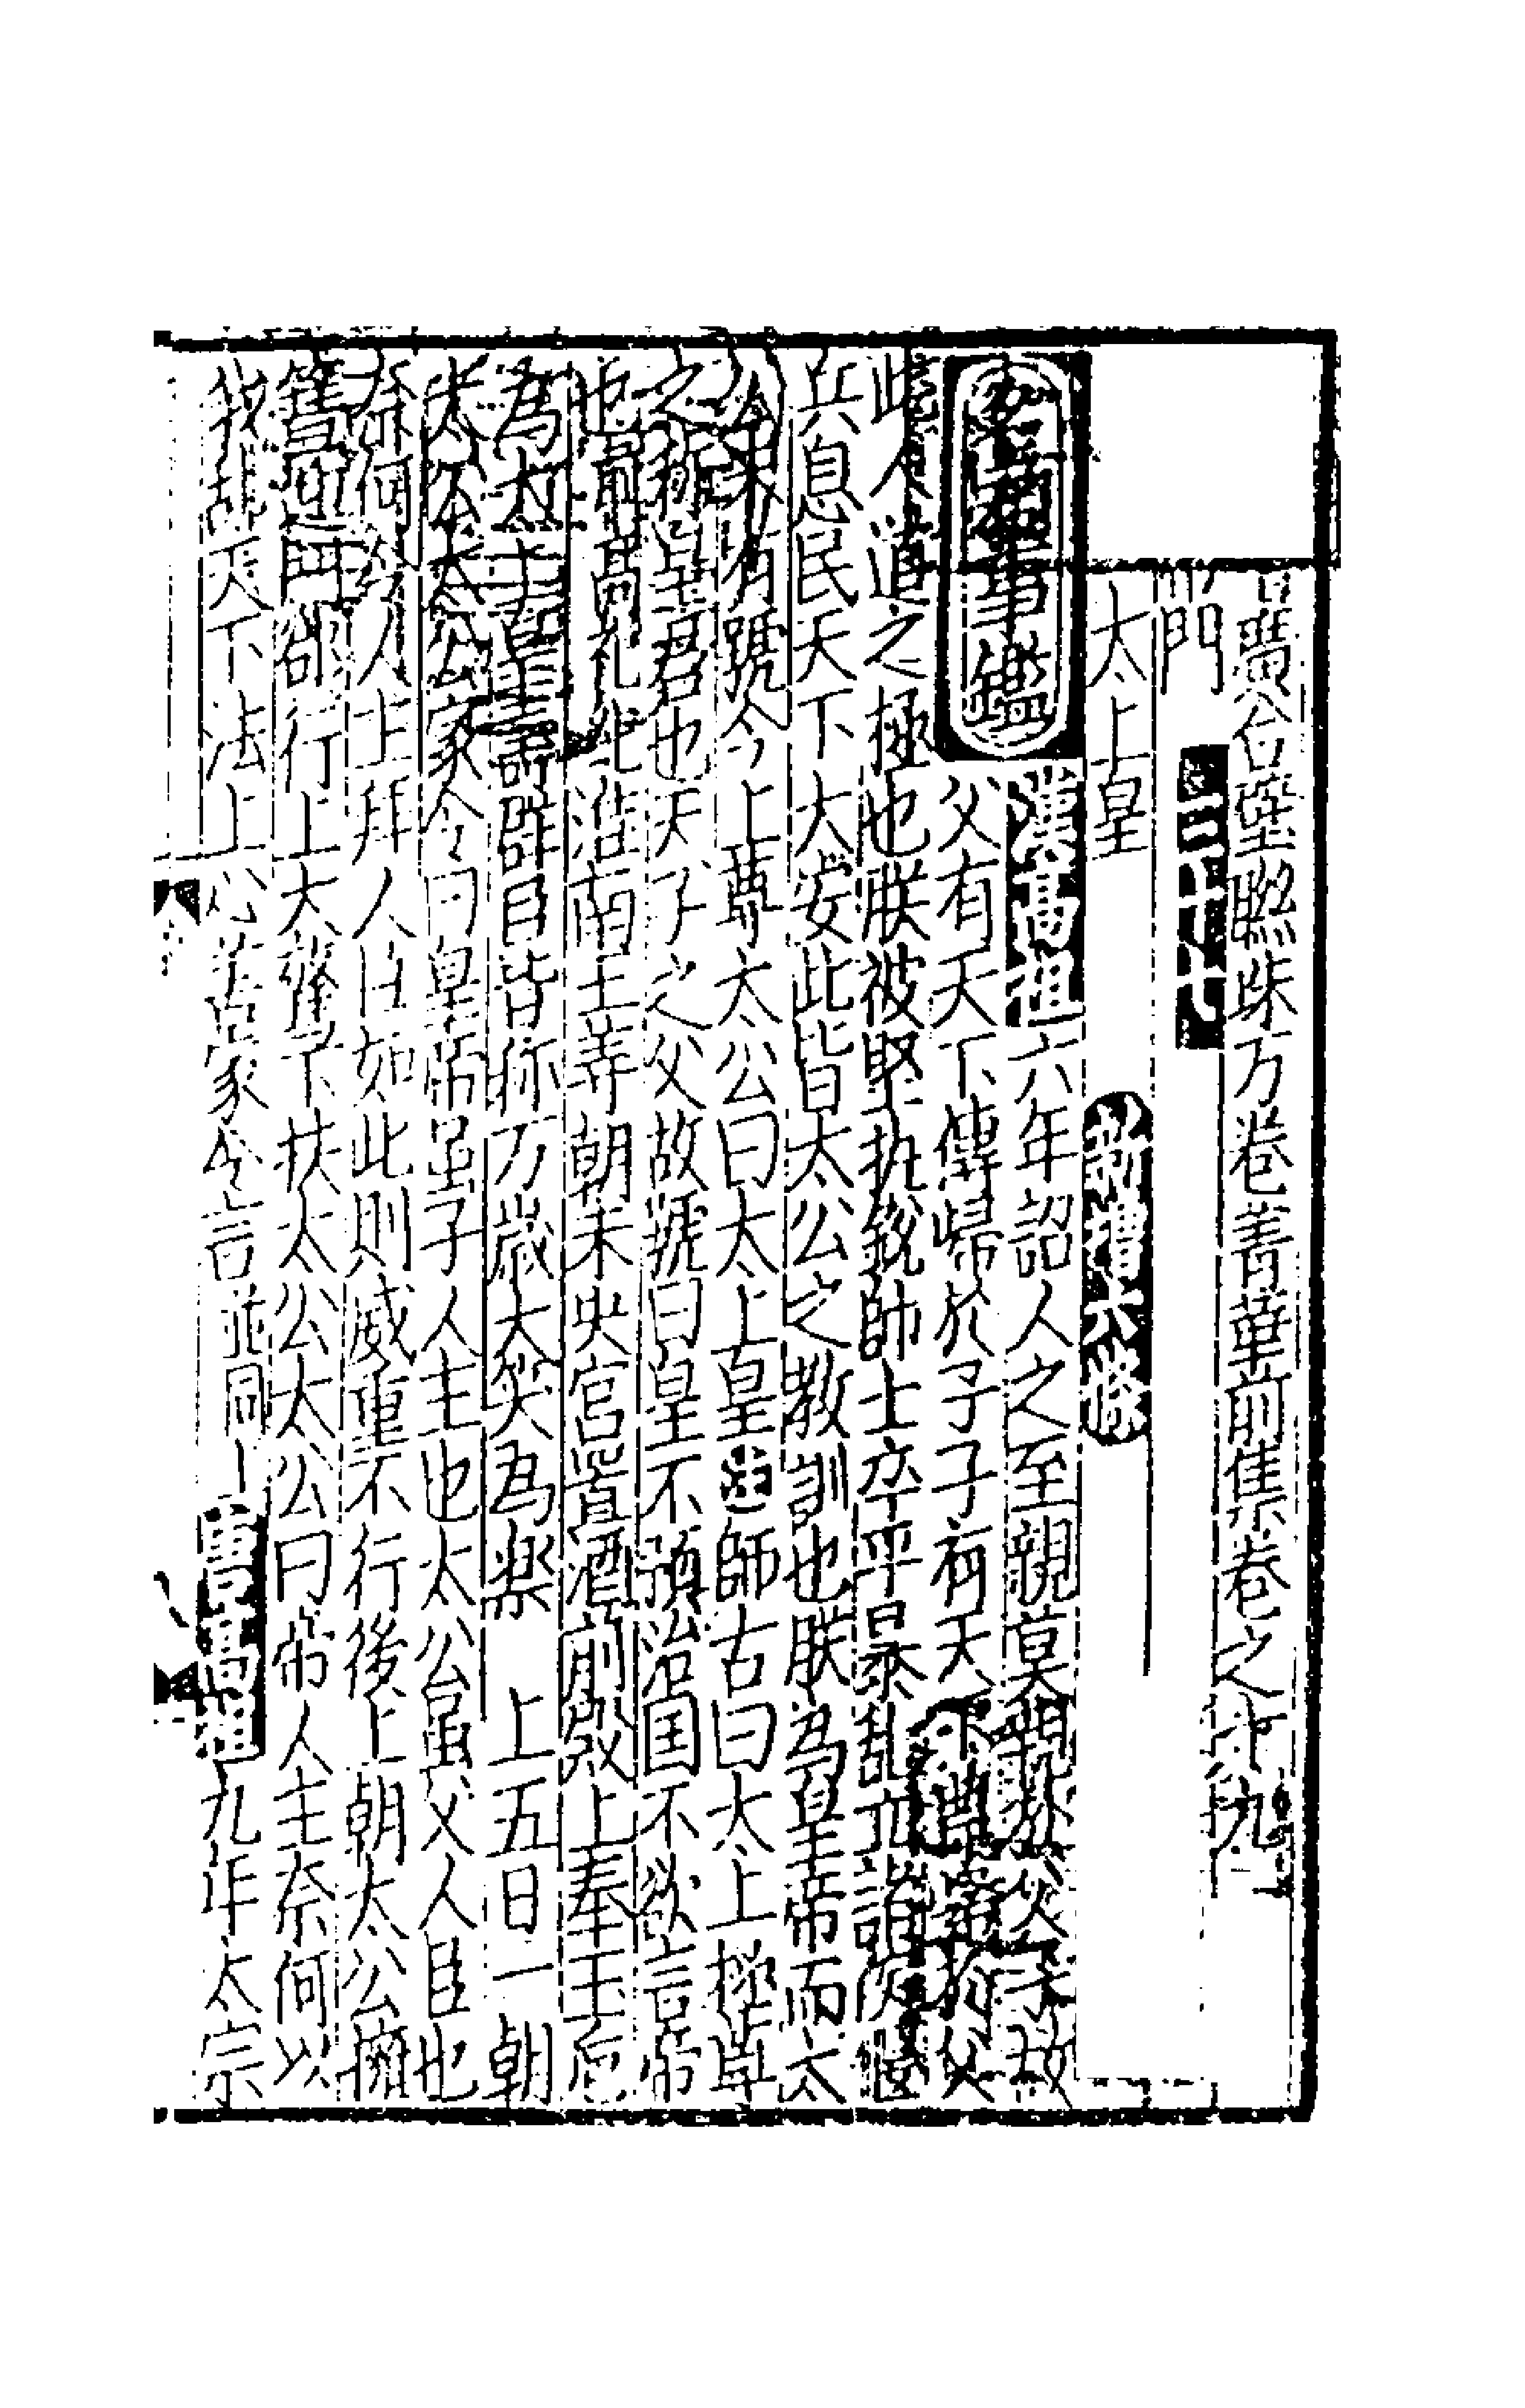 廣台壁聯珠万卷菁華前集卷之十九
門
太上皇　新增六條
事鑑　漢高祖六年詔人之至親莫親於父子故
父有天下傳歸於子子有天下尊歸於父
此人道之極也朕被堅執銳帥士卒平暴乱立諸侯偃
兵息民天下大安此皆太公之教訓也朕為皇帝而太
公未有號今上尊太公曰太上皇注師古曰太上極尊
之称皇君也天子之父故號曰皇不預治国不欲言帝
也　高九年淮南王等朝未央宫置酒前殿上奉玉卮
為太上皇壽群臣皆称万歲大笑為楽　上五日一朝
太公太公家令曰皇帝虽子人主也太公虽父人臣也
奈何令人主拜人臣如此則威重不行後上朝太公擁
篲迎門郤行上大驚下扶太公太公曰帝人主奈何以
我乱天下法上心善家令言並同上　高祖九年太宗